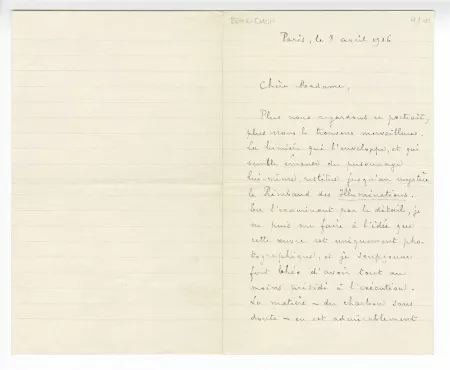 Paris, le 8 avril 1926
Chère Madame,
Plus nous regardons ce portrait,
plus nous le trouvons merveilleux.
La lumière qui l'enveloppe, et qui
semble émaner du personnage
lui-même, restitue jusqu'au mystère
le Rimbaud des Illuminations.
En l'examinant par le détail, je
ne puis me faire à l'idée que
cette œuvre est uniquement pho-
tographique, et je soupçonne
fort d'avoir tout au
moins présidé à l'exécution.
La matière – du charbon sans
doute – en est admirablement